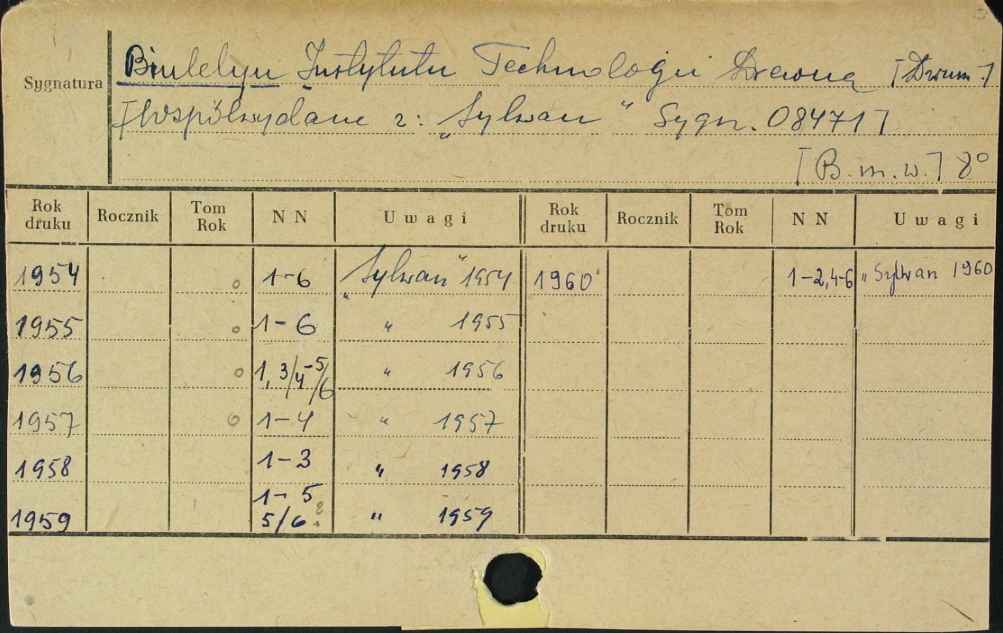 Sygnatura
Biuletyn Instytutu Technologii Drewna [Drum.]
[Współwydane z: „Sylwan" Sygn. 08471]
[B.m.w.] 8°
Rok druku Rocznik Tom Rok N N Uwagi Rok druku Rocznik Tom Rok N N Uwagi
1954 o 1-6 „Sylwan" 1954 1960 1-2,4-6 „Sylwan 1960
1955 o 1-6 " 1955
1956 o 1, 3/4-5/6 " 1956
1957 o 1-4 " 1957
1958 1-3 " 1958
1959 1-5 5/6 ? " 1959